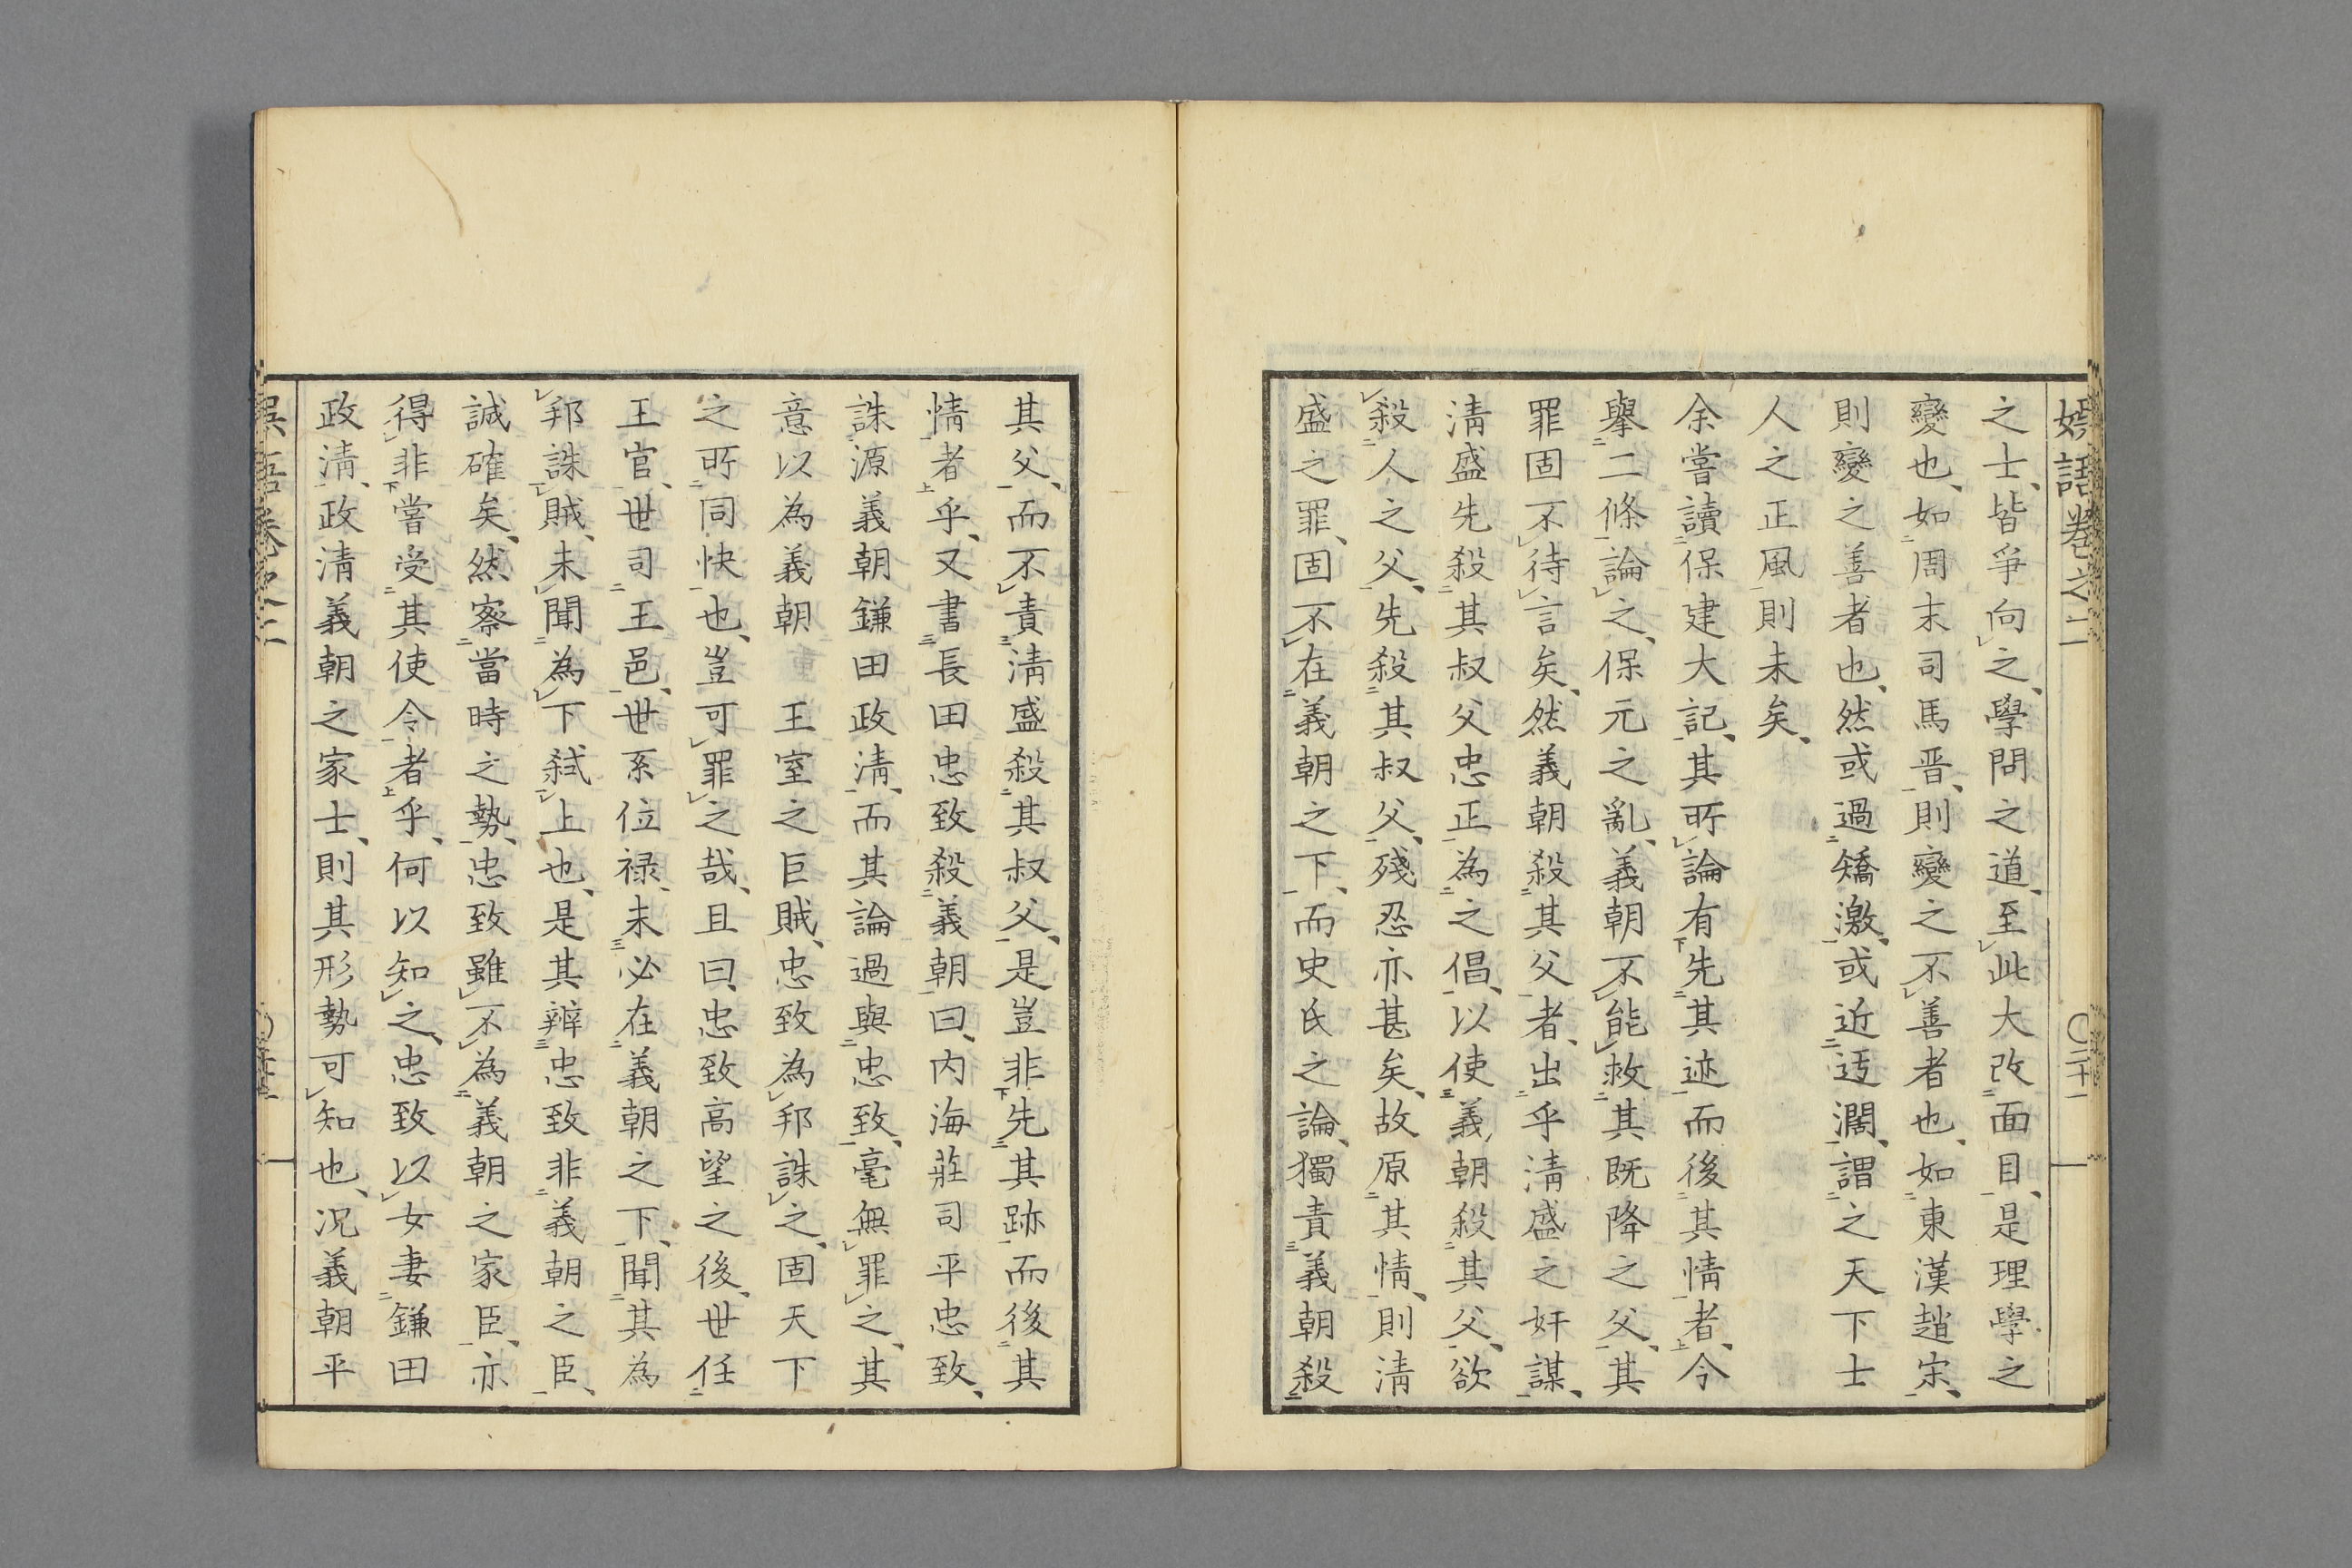 娯語卷之二 〇二十一
之士、皆爭向之、學問之道、至此大改面目、是理學之
變也、如周末司馬晋、則變之不善者也、如東漢趙宋、
則變之善者也、然或過矯激、或近迂濶、謂之天下士
人之正風則未矣、
余嘗讀保建大記、其所論有先其迹而後其情者、今
擧二條論之、保元之亂、義朝不能救其既降之父、其
罪固不待言矣、然義朝殺其父者、出乎淸盛之奸謀、
淸盛先殺其叔父忠正為之倡、以使義朝殺其父、欲
殺人之父、先殺其叔父、殘忍亦甚矣、故原其情、則淸
盛之罪、固不在義朝之下、而史氏之論、獨責義朝殺
其父、而不責淸盛殺其叔父、是豈非先其跡而後其
情者乎、又書長田忠致殺義朝曰、内海莊司平忠致、
誅源義朝鎌田政淸、而其論過與忠致、毫無罪之、其
意以為義朝 王室之巨賊、忠致為邦誅之、固天下
之所同快也、豈可罪之哉、且曰、忠致高望之後、世任
王官、世司王邑、世系位禄、未必在義朝之下、聞其為
邦誅賊、未聞為下弑上也、是其辨忠致非義朝之臣、
誠確矣、然察當時之勢、忠致雖不為義朝之家臣、亦
得非嘗受其使令者乎、何以知之、忠致以女妻鎌田
政淸、政淸義朝之家士、則其形勢可知也、况義朝平
語卷之二